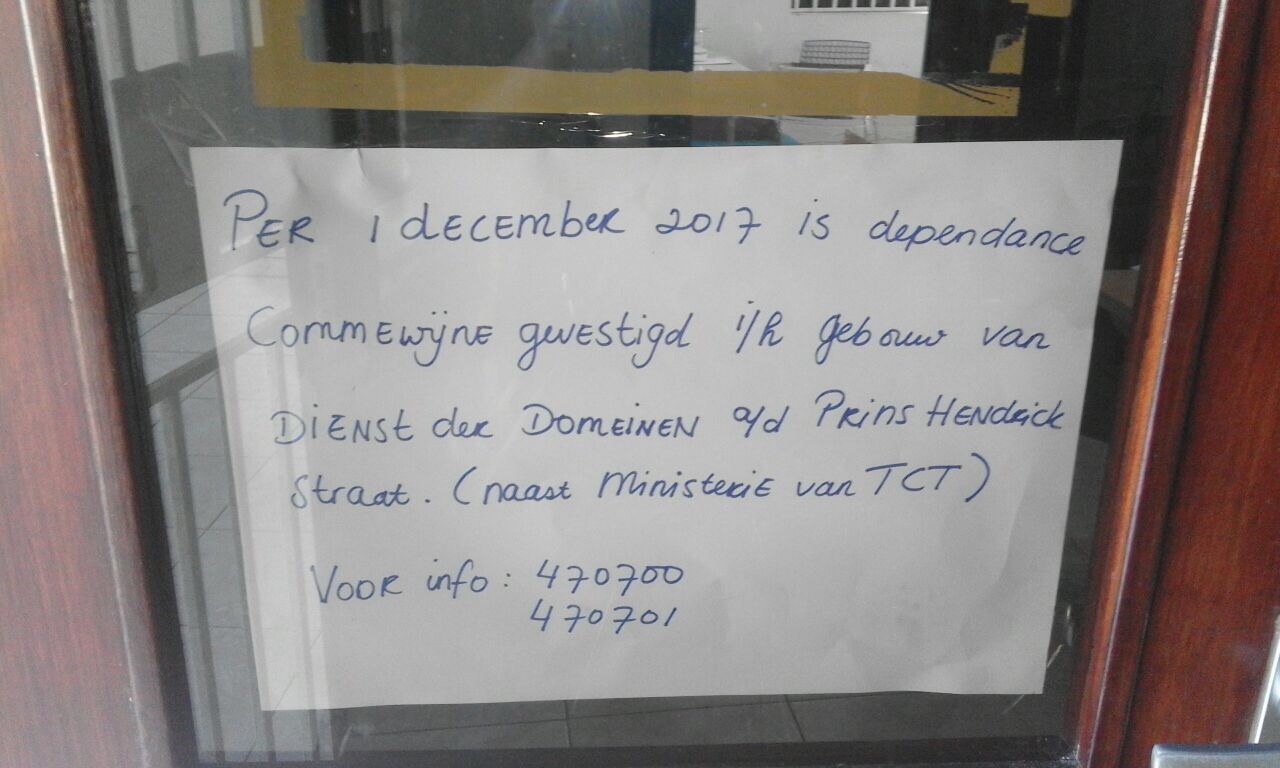 PER 1 dECEMbER 2017 is dependance
CommEwijnE gevestigd i/h gebouw van
DiENSt der DomEiNEN o/d PRiNS HENdRick
Straat. (naast MinisteriE van TCT)
VOOR info: 470700
470701